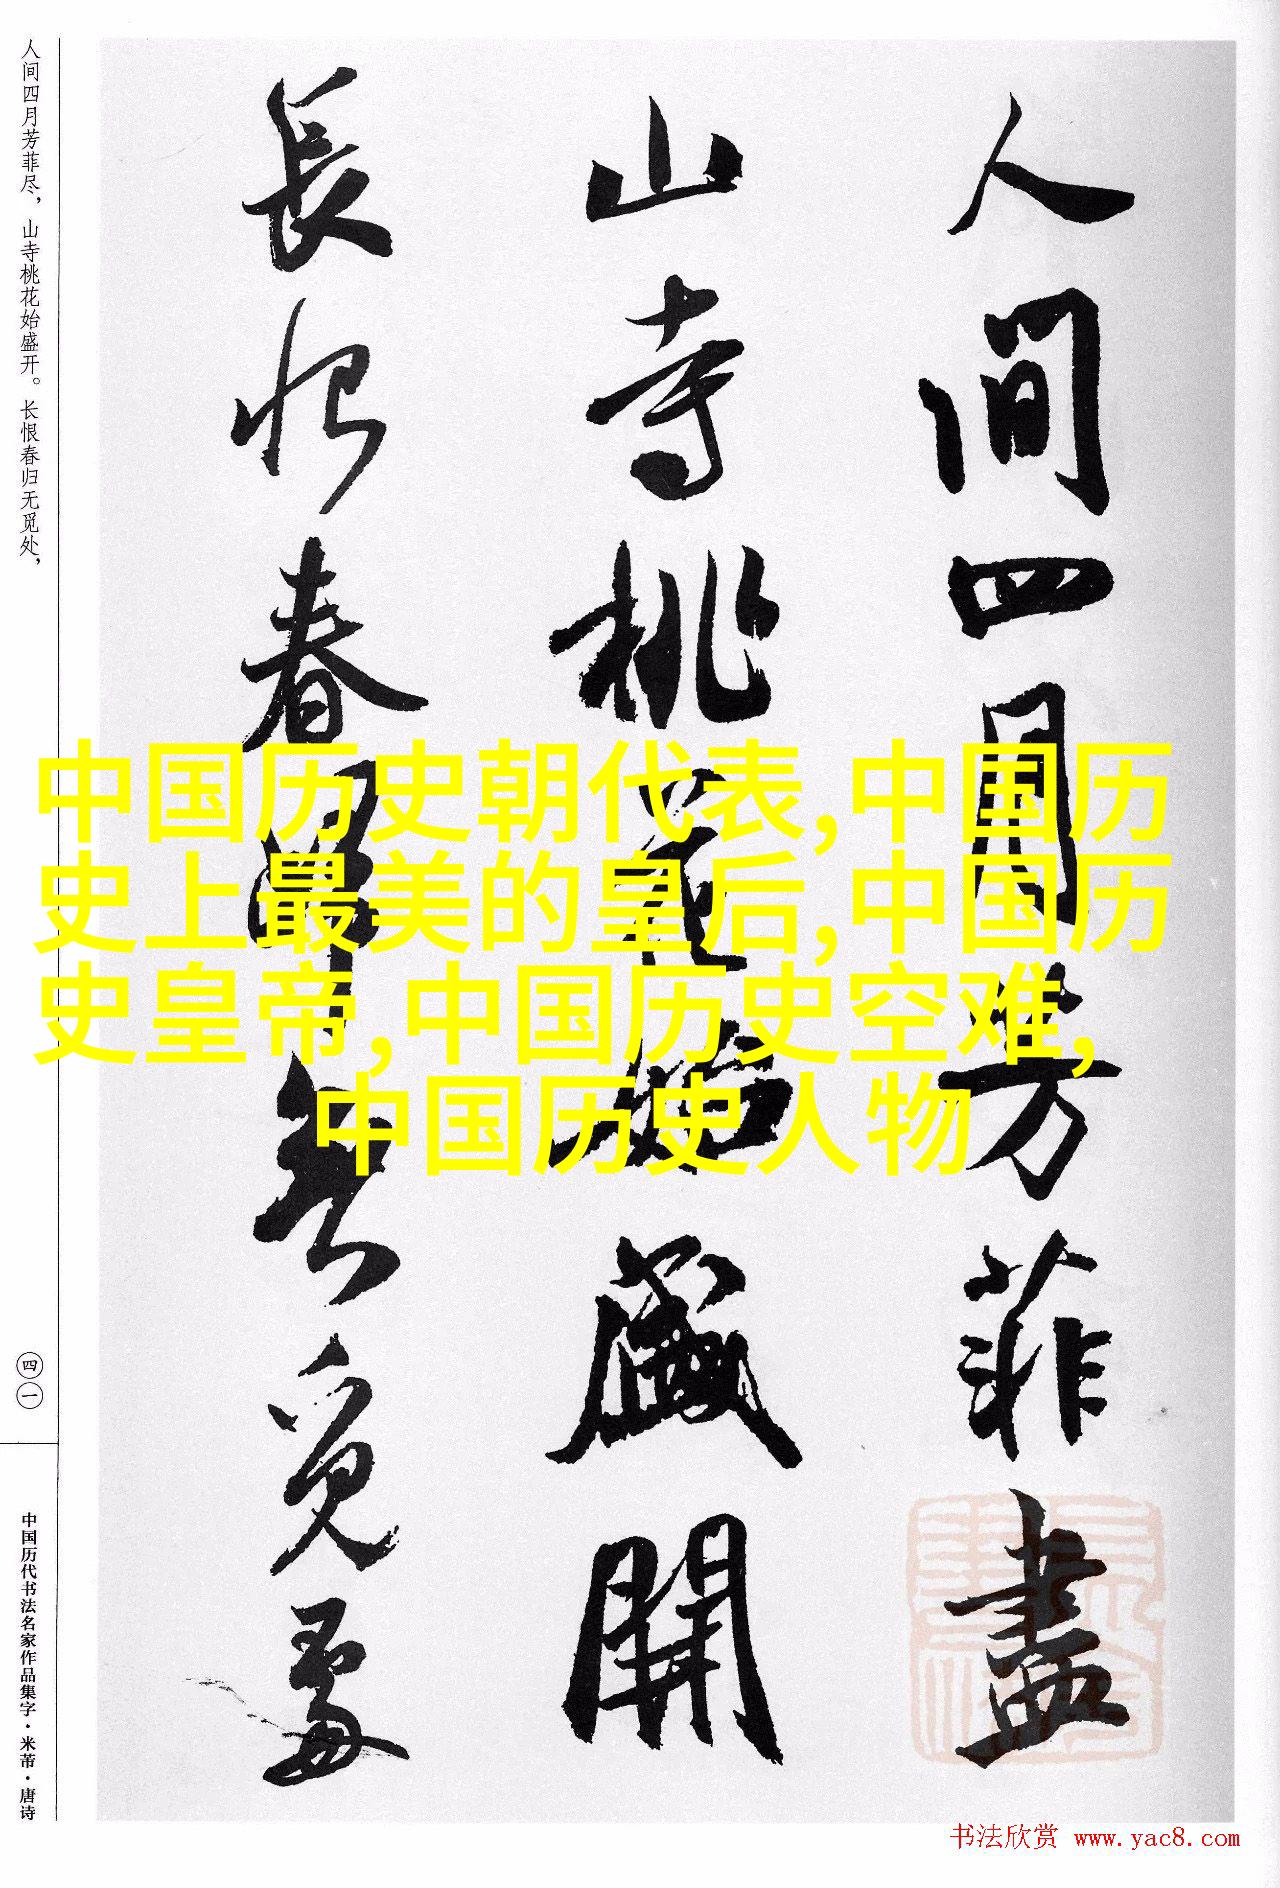 人間四月芳菲盡
山寺桃花始盛開
長恨春歸無覓處
人间四月芳菲尽，山寺桃花始盛开。长恨春归无觅处，
四一
中国历代书法名家作品集字·米芾·唐诗
中国历史朝代表,中国历
史上最美的皇后,中国历
史皇帝,中国历史空难,
中国历史人物
书法欣赏 www.yac8.com